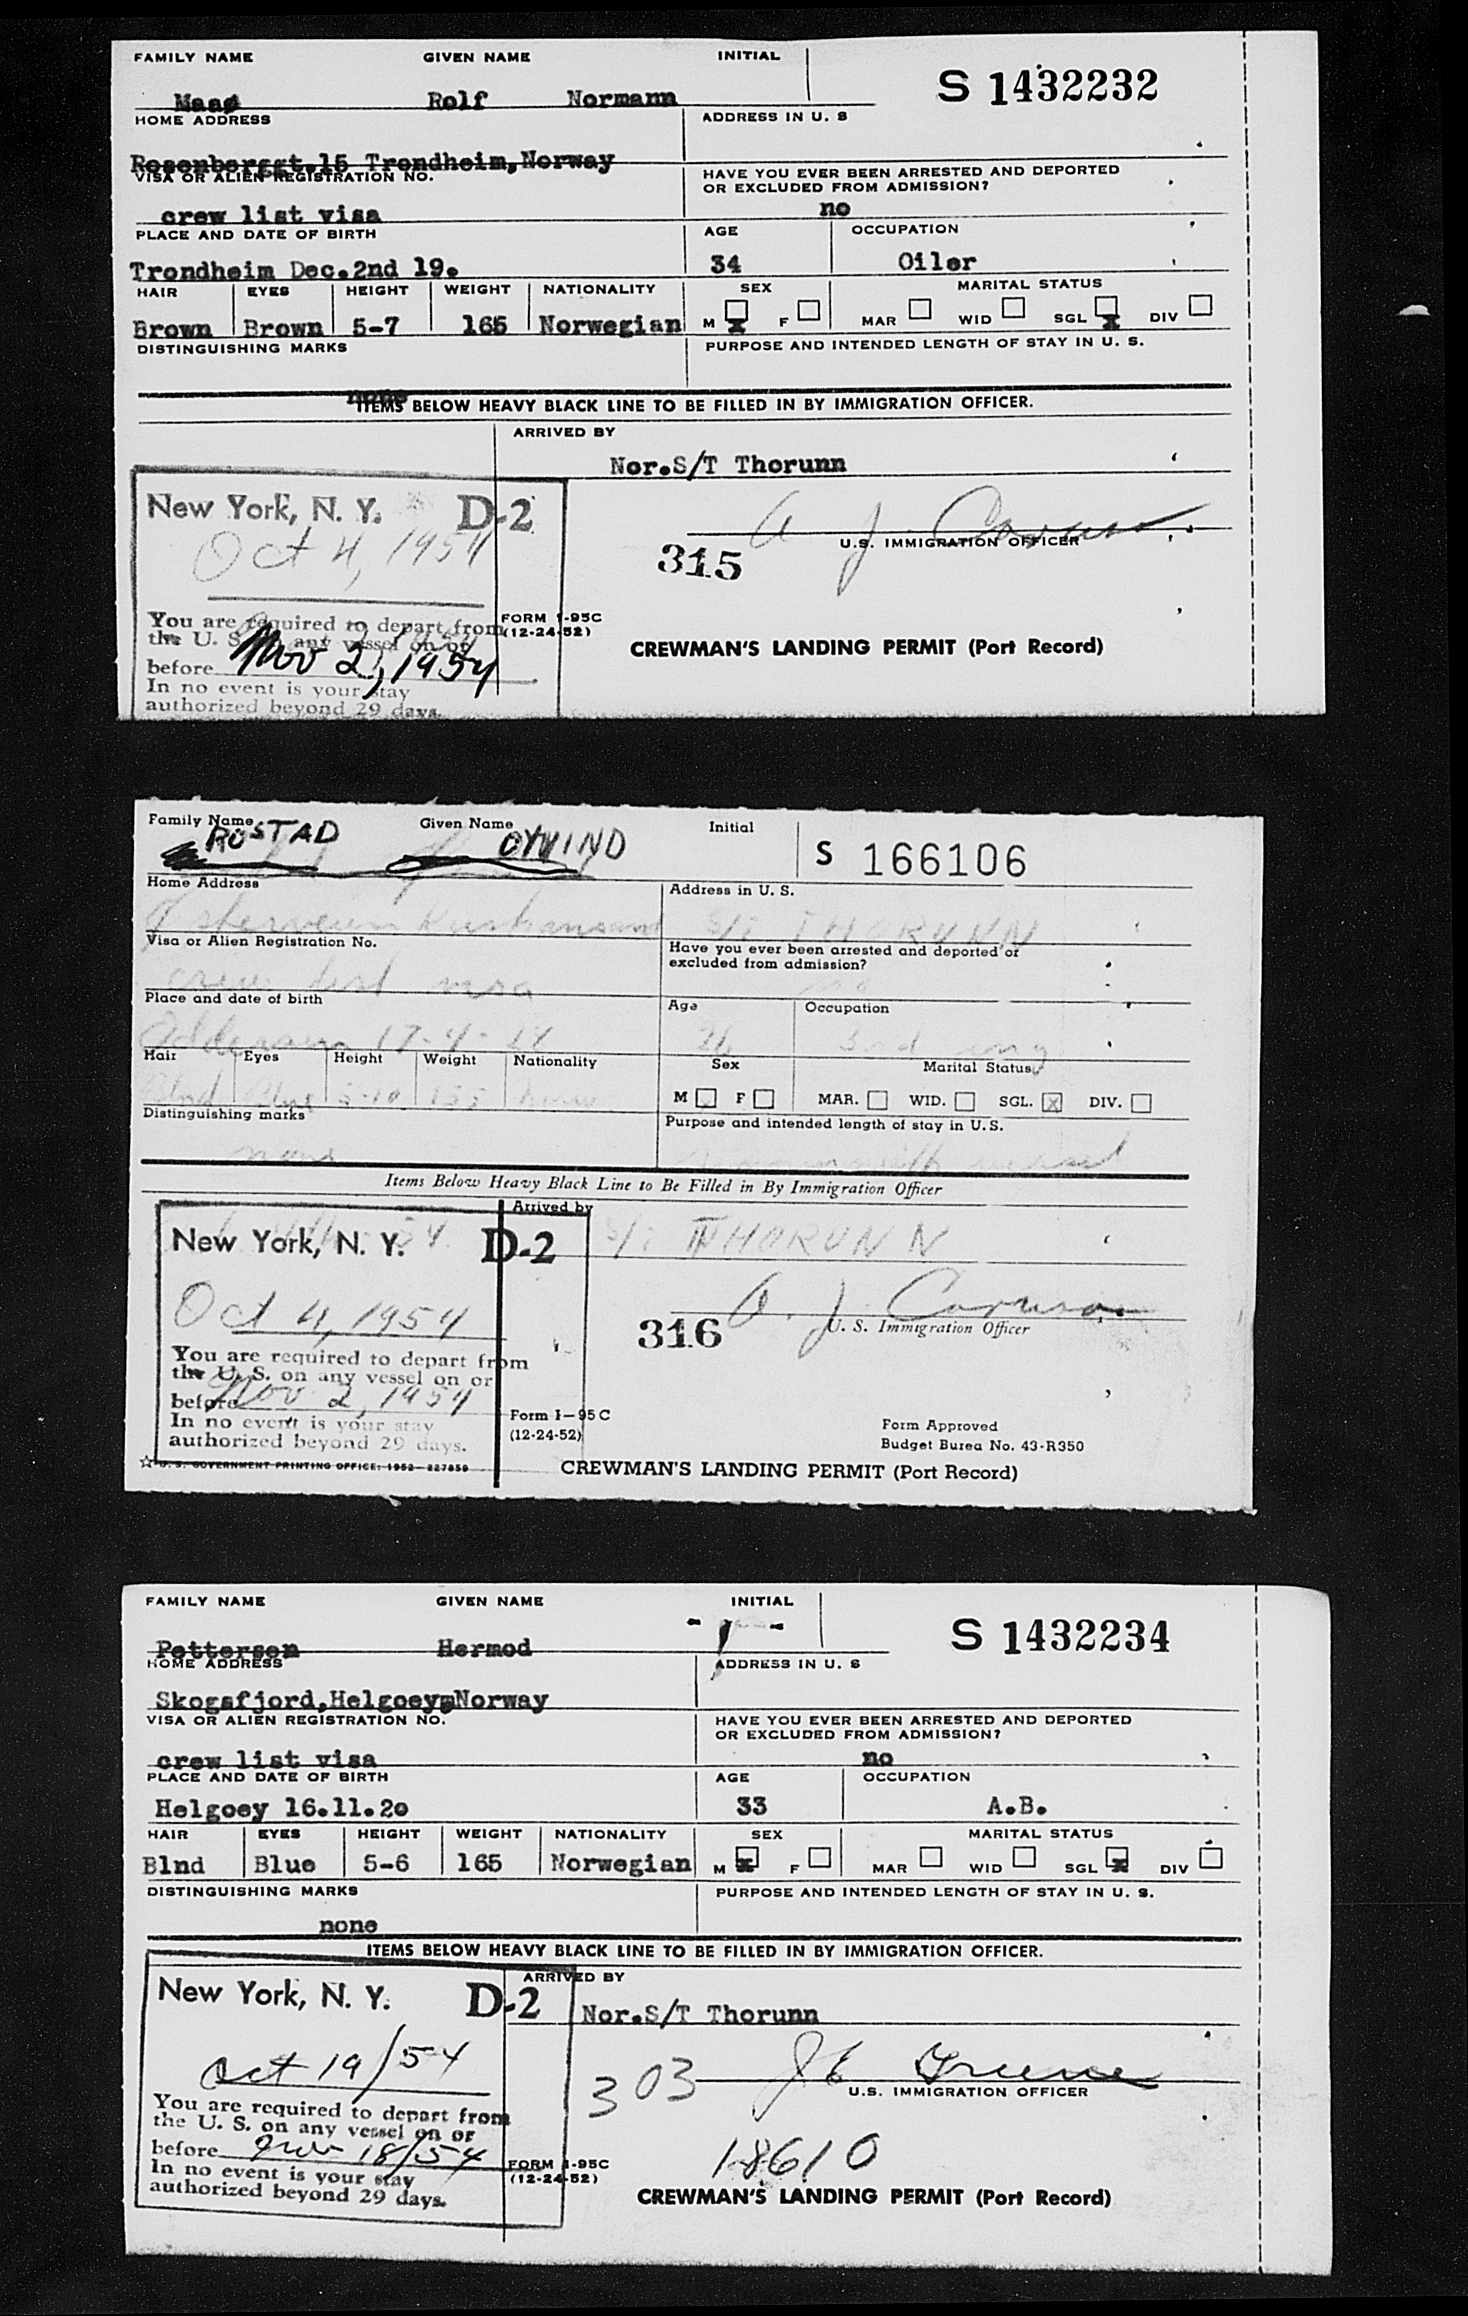 FAMILY NAME GIVEN NAME INITIAL
S 1432232
Maaø Rolf Normann
HOME ADDRESS ADDRESS IN U. S
Rosenborggt.15 Trondheim,Norway
VISA OR ALIEN REGISTRATION NO. HAVE YOU EVER BEEN ARRESTED AND DEPORTED
OR EXCLUDED FROM ADMISSION?
crew list visa no
PLACE AND DATE OF BIRTH AGE OCCUPATION
Trondheim Dec.2nd 19. 34 Oiler
HAIR EYES HEIGHT WEIGHT NATIONALITY SEX MARITAL STATUS
Brown Brown 5-7 165 Norwegian M X F MAR WID SGL X DIV
DISTINGUISHING MARKS PURPOSE AND INTENDED LENGTH OF STAY IN U. S.
none
ITEMS BELOW HEAVY BLACK LINE TO BE FILLED IN BY IMMIGRATION OFFICER.
ARRIVED BY
Nor.S/T Thorunn
New York, N. Y. D-2
Oct 4, 1954
A J
U.S. IMMIGRATION OFFICER
315
You are required to depart from
the U. S. on any vessel on or
before Nov 2, 1954
In no event is your stay
authorized beyond 29 days.
FORM I-95C
(12-24-52)
CREWMAN'S LANDING PERMIT (Port Record)
Family Name Given Name Initial
ROSTAD OYVIND
S 166106
Home Address Address in U. S.
S/T THORUNN
Visa or Alien Registration No. Have you ever been arrested and deported or
excluded from admission?
crew list visa no
Place and date of birth Age Occupation
17-4- 26 3rd eng
Hair Eyes Height Weight Nationality Sex Marital Status
Blnd Blue 5-10 155 M F MAR. WID. SGL. X DIV.
Distinguishing marks Purpose and intended length of stay in U.S.
none
Items Below Heavy Black Line to Be Filled in By Immigration Officer
Arrived by
S/T THORUNN
New York, N. Y. D-2
Oct 4, 1954
A. J.
U. S. Immigration Officer
316
You are required to depart from
the U. S. on any vessel on or
before Nov 2, 1954
In no event is your stay
authorized beyond 29 days.
Form I—95C
(12-24-52)
Form Approved
Budget Burea No. 43-R350
☆ U. S. GOVERNMENT PRINTING OFFICE: 1952—227859
CREWMAN'S LANDING PERMIT (Port Record)
FAMILY NAME GIVEN NAME INITIAL
S 1432234
Pettersen Hermod - -
HOME ADDRESS ADDRESS IN U. S
Skogsfjord,Helgoey,Norway
VISA OR ALIEN REGISTRATION NO. HAVE YOU EVER BEEN ARRESTED AND DEPORTED
OR EXCLUDED FROM ADMISSION?
crew list visa no
PLACE AND DATE OF BIRTH AGE OCCUPATION
Helgoey 16.11.20 33 A.B.
HAIR EYES HEIGHT WEIGHT NATIONALITY SEX MARITAL STATUS
Blnd Blue 5-6 165 Norwegian M X F MAR WID SGL X DIV
DISTINGUISHING MARKS PURPOSE AND INTENDED LENGTH OF STAY IN U. S.
none
ITEMS BELOW HEAVY BLACK LINE TO BE FILLED IN BY IMMIGRATION OFFICER.
ARRIVED BY
Nor.S/T Thorunn
New York, N. Y. D-2
Oct 19/54
303 J E Greene
U.S. IMMIGRATION OFFICER
You are required to depart from
the U. S. on any vessel on or
before Nov 18/54
In no event is your stay
authorized beyond 29 days.
FORM I-95C
(12-24-52)
18610
CREWMAN'S LANDING PERMIT (Port Record)